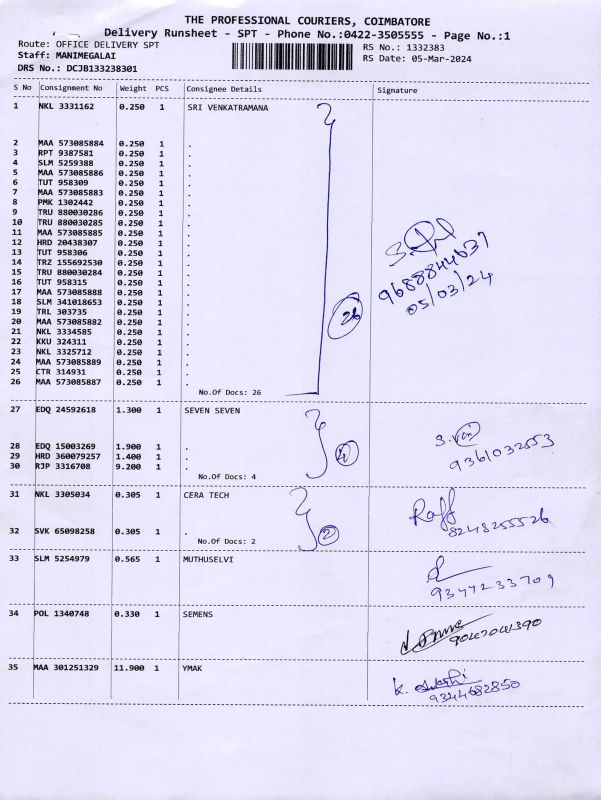 THE PROFESSIONAL COURIERS, COIMBATORE
Delivery Runsheet - SPT - Phone No.:0422-3505555 - Page No.:1
Route: OFFICE DELIVERY SPT RS No.: 1332383
Staff: MANIMEGALAI RS Date: 05-Mar-2024
DRS No.: DCJB133238301
S No Consignment No Weight PCS Consignee Details Signature
1 NKL 3331162 0.250 1 SRI VENKATRAMANA
2 MAA 573085884 0.250 1 .
3 RPT 9387581 0.250 1 .
4 SLM 5259388 0.250 1 .
5 MAA 573085886 0.250 1 .
6 TUT 958309 0.250 1 .
7 MAA 573085883 0.250 1 .
8 PMK 1302442 0.250 1 .
9 TRU 880030286 0.250 1 .
10 TRU 880030285 0.250 1 .
11 MAA 573085885 0.250 1 .
12 HRD 20438307 0.250 1 .
13 TUT 958306 0.250 1 .
14 TRZ 155692530 0.250 1 .
15 TRU 880030284 0.250 1 .
16 TUT 958315 0.250 1 .
17 MAA 573085888 0.250 1 .
18 SLM 341018653 0.250 1 .
19 TRL 303735 0.250 1 .
20 MAA 573085882 0.250 1 .
21 NKL 3334585 0.250 1 .
22 KKU 324311 0.250 1 .
23 NKL 3325712 0.250 1 .
24 MAA 573085889 0.250 1 .
25 CTR 314931 0.250 1 .
26 MAA 573085887 0.250 1 .
No.Of Docs: 26
26
9688844637
05/03/24
27 EDQ 24592618 1.300 1 SEVEN SEVEN
28 EDQ 15003269 1.900 1 .
29 HRD 360079257 1.400 1 .
30 RJP 3316708 9.200 1 .
No.Of Docs: 4
4
9361032553
31 NKL 3305034 0.305 1 CERA TECH
32 SVK 65098258 0.305 1 .
No.Of Docs: 2
2
Raff
8248255526
33 SLM 5254979 0.565 1 MUTHUSELVI
9347233709
34 POL 1340748 0.330 1 SEMENS
9047041390
35 MAA 301251329 11.900 1 YMAK
9344682850